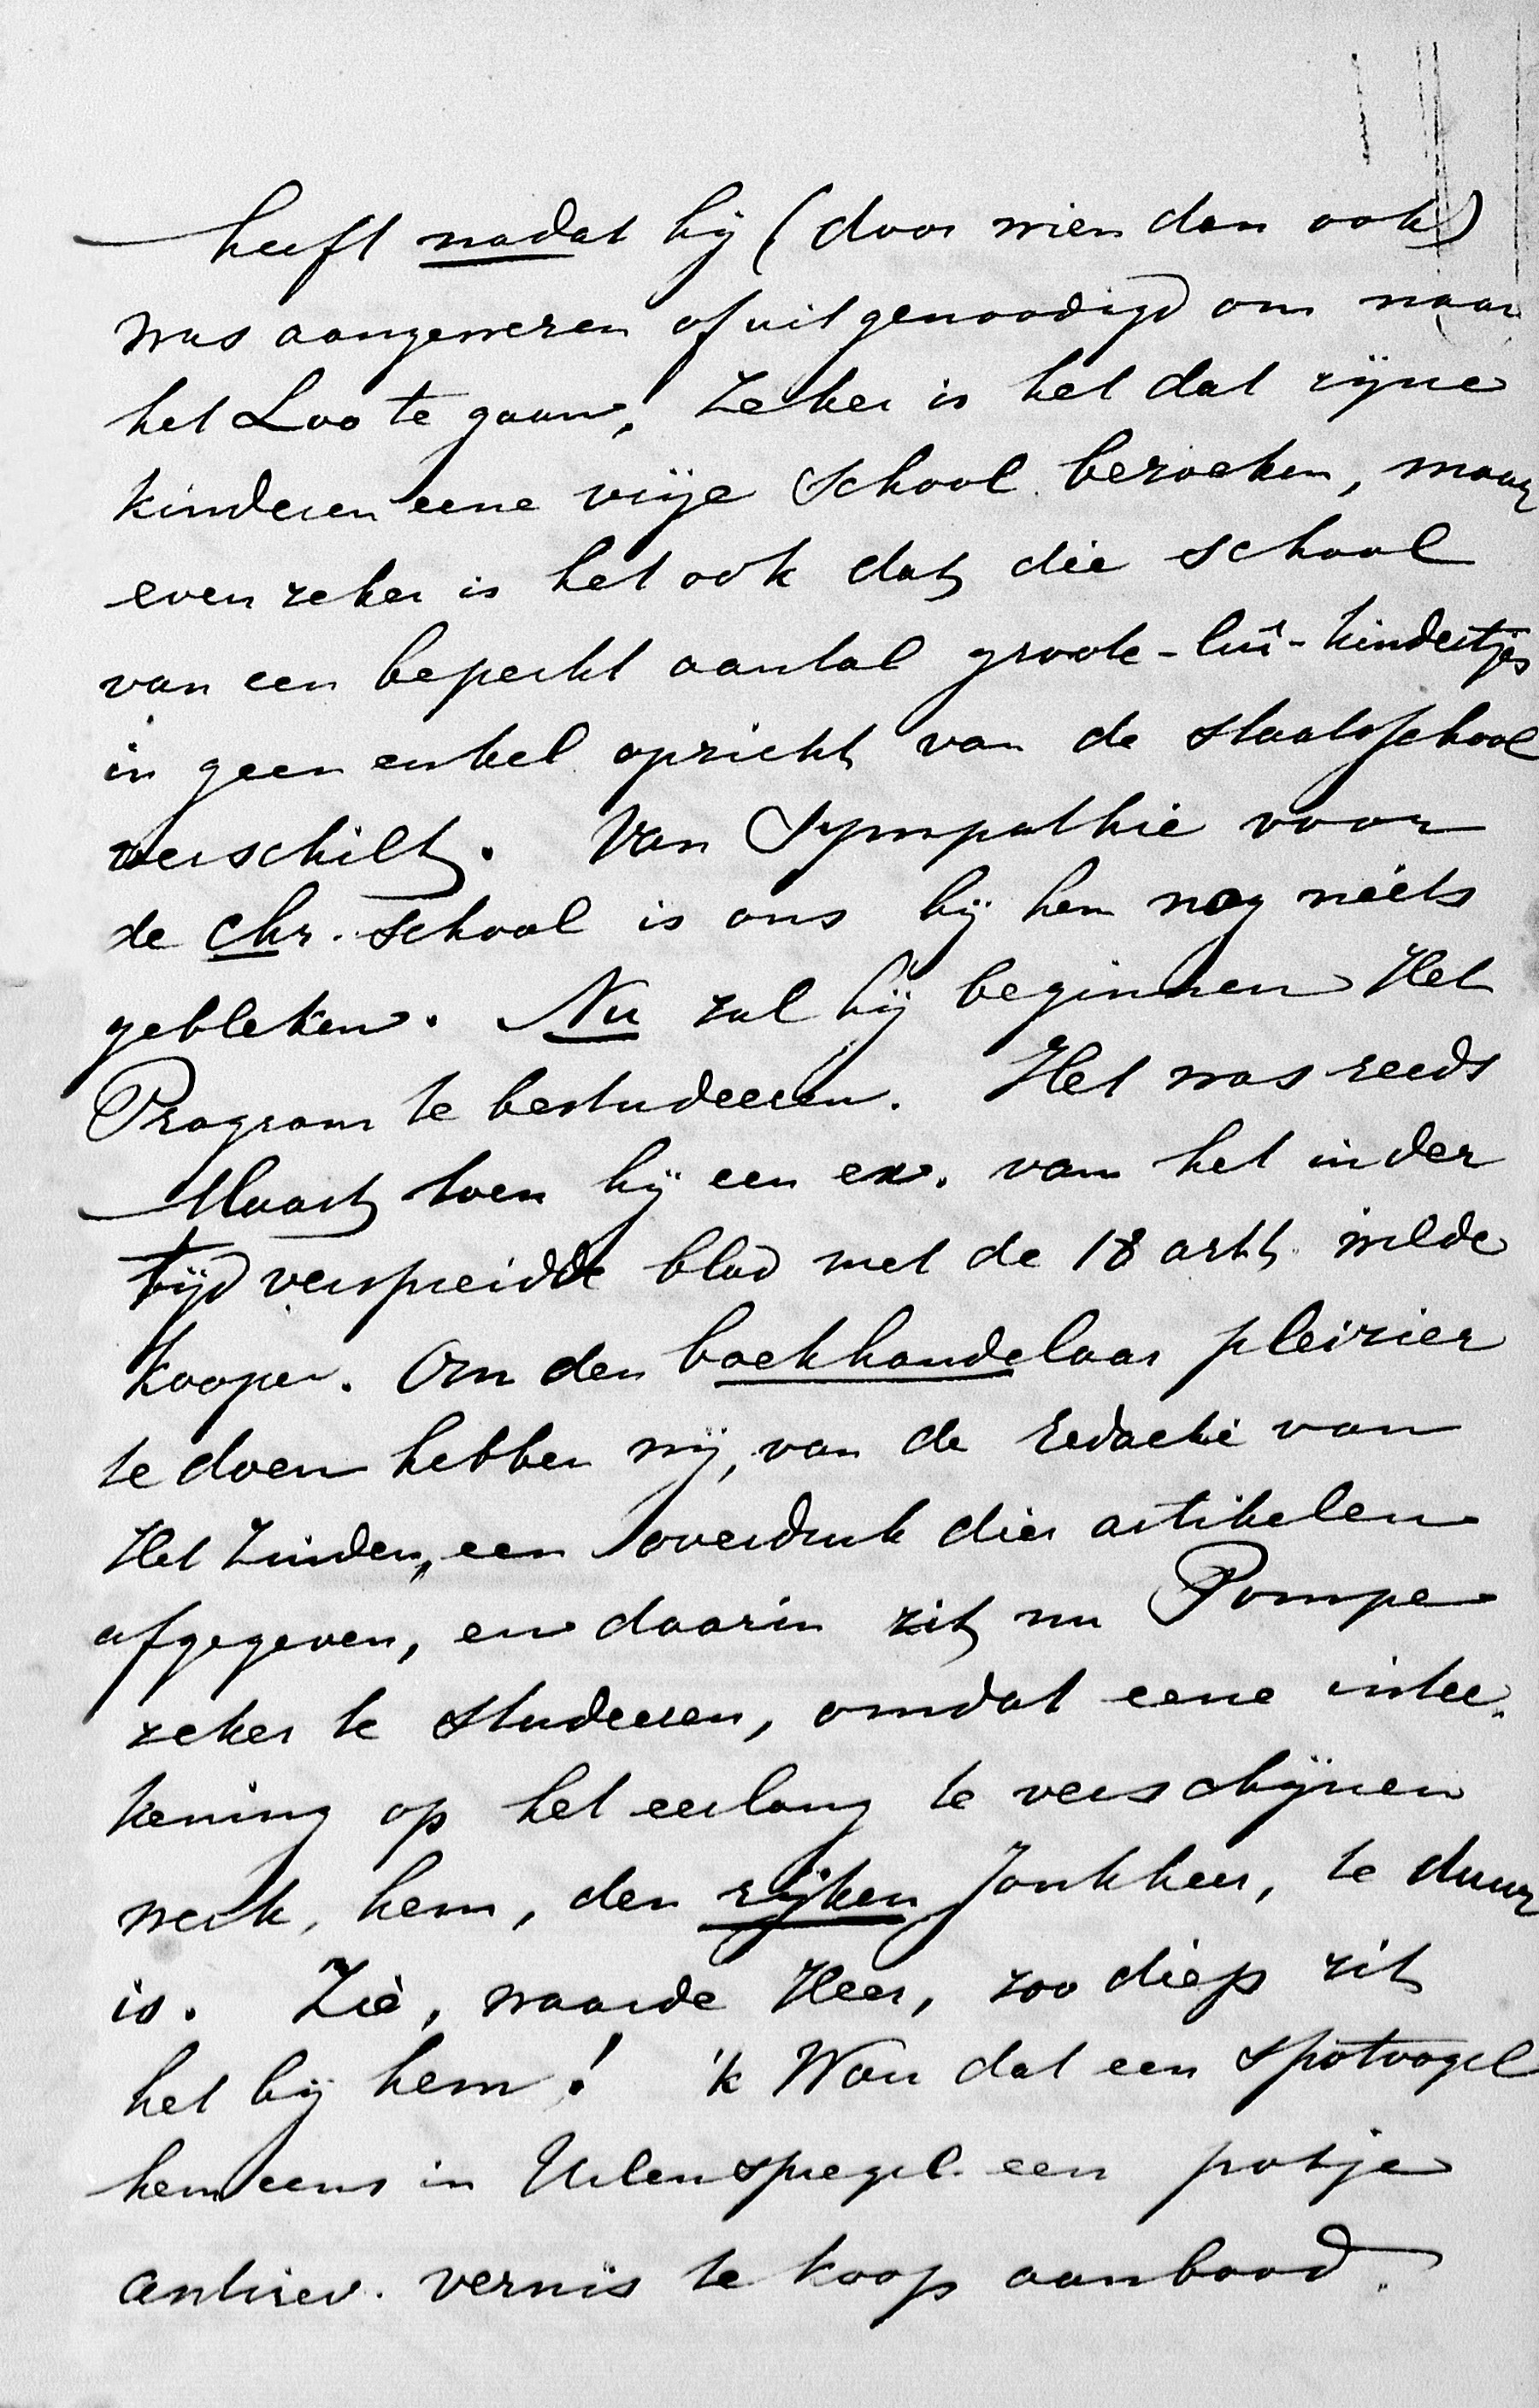 heeft nadat hij (door wien dan ook)
was aangewezen of uitgenoodigd om naar
het Loo te gaan, Zeker is het dat zijne
kinderen eene vrije School bezoeken, maar
even zeker is het ook dat die school
van een beperkt aantal groote-lui-kindertjes
in geen enkel opzicht van de staatsschool
verschilt. Van Sympathie voor
de chr. School is ons bij hem nog niets
gebleken. Nu zal hij beginnen Het
Program te bestudeeren. Het was reeds
Maart toen hij een ex. van het in der
tijd verspreidde blad met de 18 artt. wilde
koopen. Om den boekhandelaar pleizier
te doen hebben wij, van de redactie van
Het Zuiden, een overdruk dier artikelen
afgegeven, en daarin zit nu Pompe
zeker te studeeren, omdat eene intee-
kening op het eerlang te verschijnen
werk, hem, den rijken Jonkheer, te duur
is. Zie, waarde Heer, zoo diep zit
het bij hem! 'k Wou dat een spotvogel
hem eens in Uilenspiegel een potje
antirev. vernis te koop aanbood.